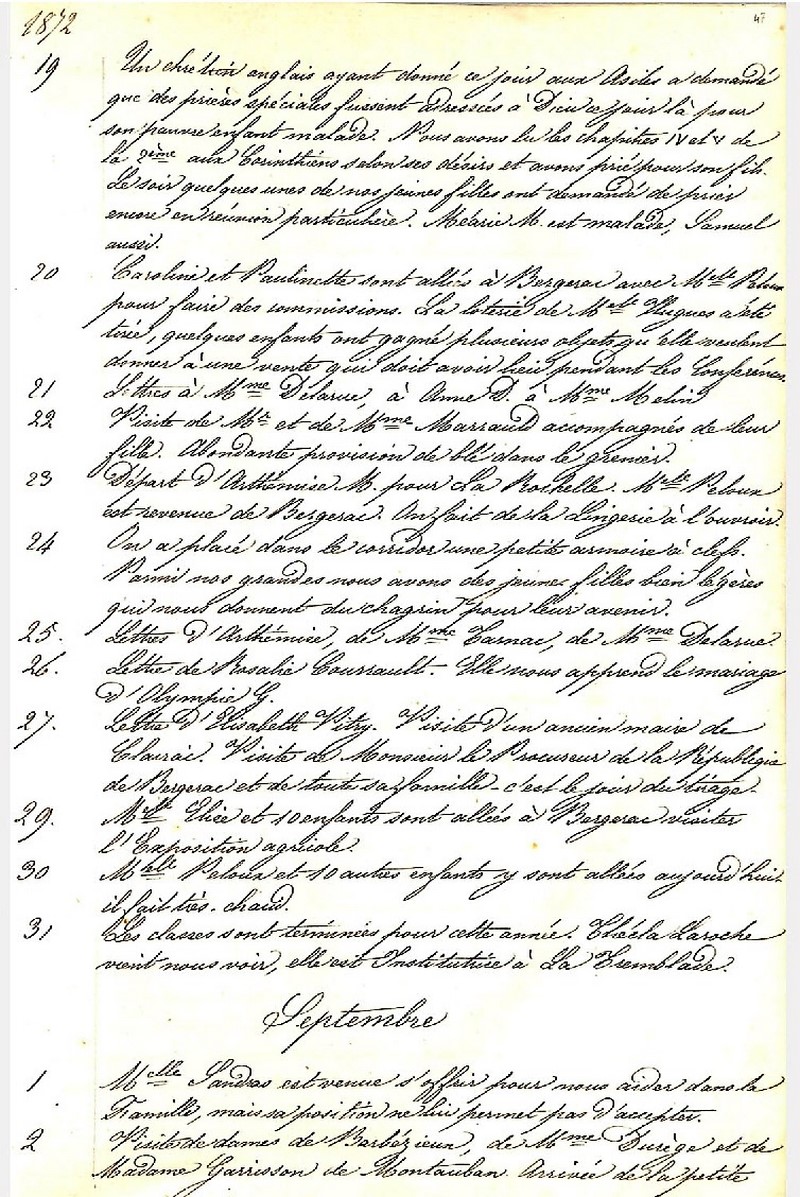 1872
47
19 Un chrétien anglais ayant donné ce jour aux Asiles a demandé
que des prières spéciales fussent adressées à Dieu ce jour là pour
son pauvre enfant malade. Nous avons lu les chapitres IV et V de
la 2ème aux Corinthiens selon ses désirs et avons prié pour son fils.
Le soir quelques unes de nos jeunes filles ont demandé de prier
encore en réunion particulière. Méarie M. est malade, Samuel
aussi.
20 Caroline et Paulinette sont allées à Bergerac avec Melle Peloux
pour faire des commissions. La loterie de Melle Hugues a été
tirée, quelques enfants ont gagné plusieurs objets qu'elle veulent
donner à une vente qui doit avoir lieu pendant les Conférences.
21 Lettres à Mme Delarue, à Anne D. à Mme Melin
22 Visite de Mr et de Mme Marraud accompagnés de leur
fille. Abondante provision de blé dans le grenier.
23 Départ d'Arthémise M. pour La Rochelle. Melle Peloux
est revenue de Bergerac. On fait de la Lingerie à l'ouvroir.
24 On a placé dans le corridor une petite armoire à clefs.
Parmi nos grandes nous avons des jeunes filles bien légères
qui nous donnent du chagrin pour leur avenir.
25. Lettres d'Arthémise, de Mme Tarnac, de Mme Delarue.
26. Lettre de Rosalie Courrault. Elle nous apprend le mariage
d'Olympie G.
27. Lettre d'Elisabeth Vitry. Visite d'un ancien maire de
Clairac. Visite de Monsieur le Procureur de la République
de Bergerac et de toute sa famille - c'est le jour du tirage.
29. Melle Elise et 10 enfants sont allées à Bergerac visiter
l'Exposition agricole.
30 Melle Peloux et 10 autres enfants y sont allées aujourd'hui.
il fait très-chaud.
31 Les classes sont terminées pour cette année. Thécla Laroche
vient nous voir, elle est Institutrice à La Tremblade.
Septembre
1 Melle Sandras est venue s'offrir pour nous aider dans la
Famille, mais sa position ne lui permet pas d'accepter.
2 Visite de dames de Barbézieux, de Mme Durège et de
Madame Garrisson de Montauban. Arrivée de la petite